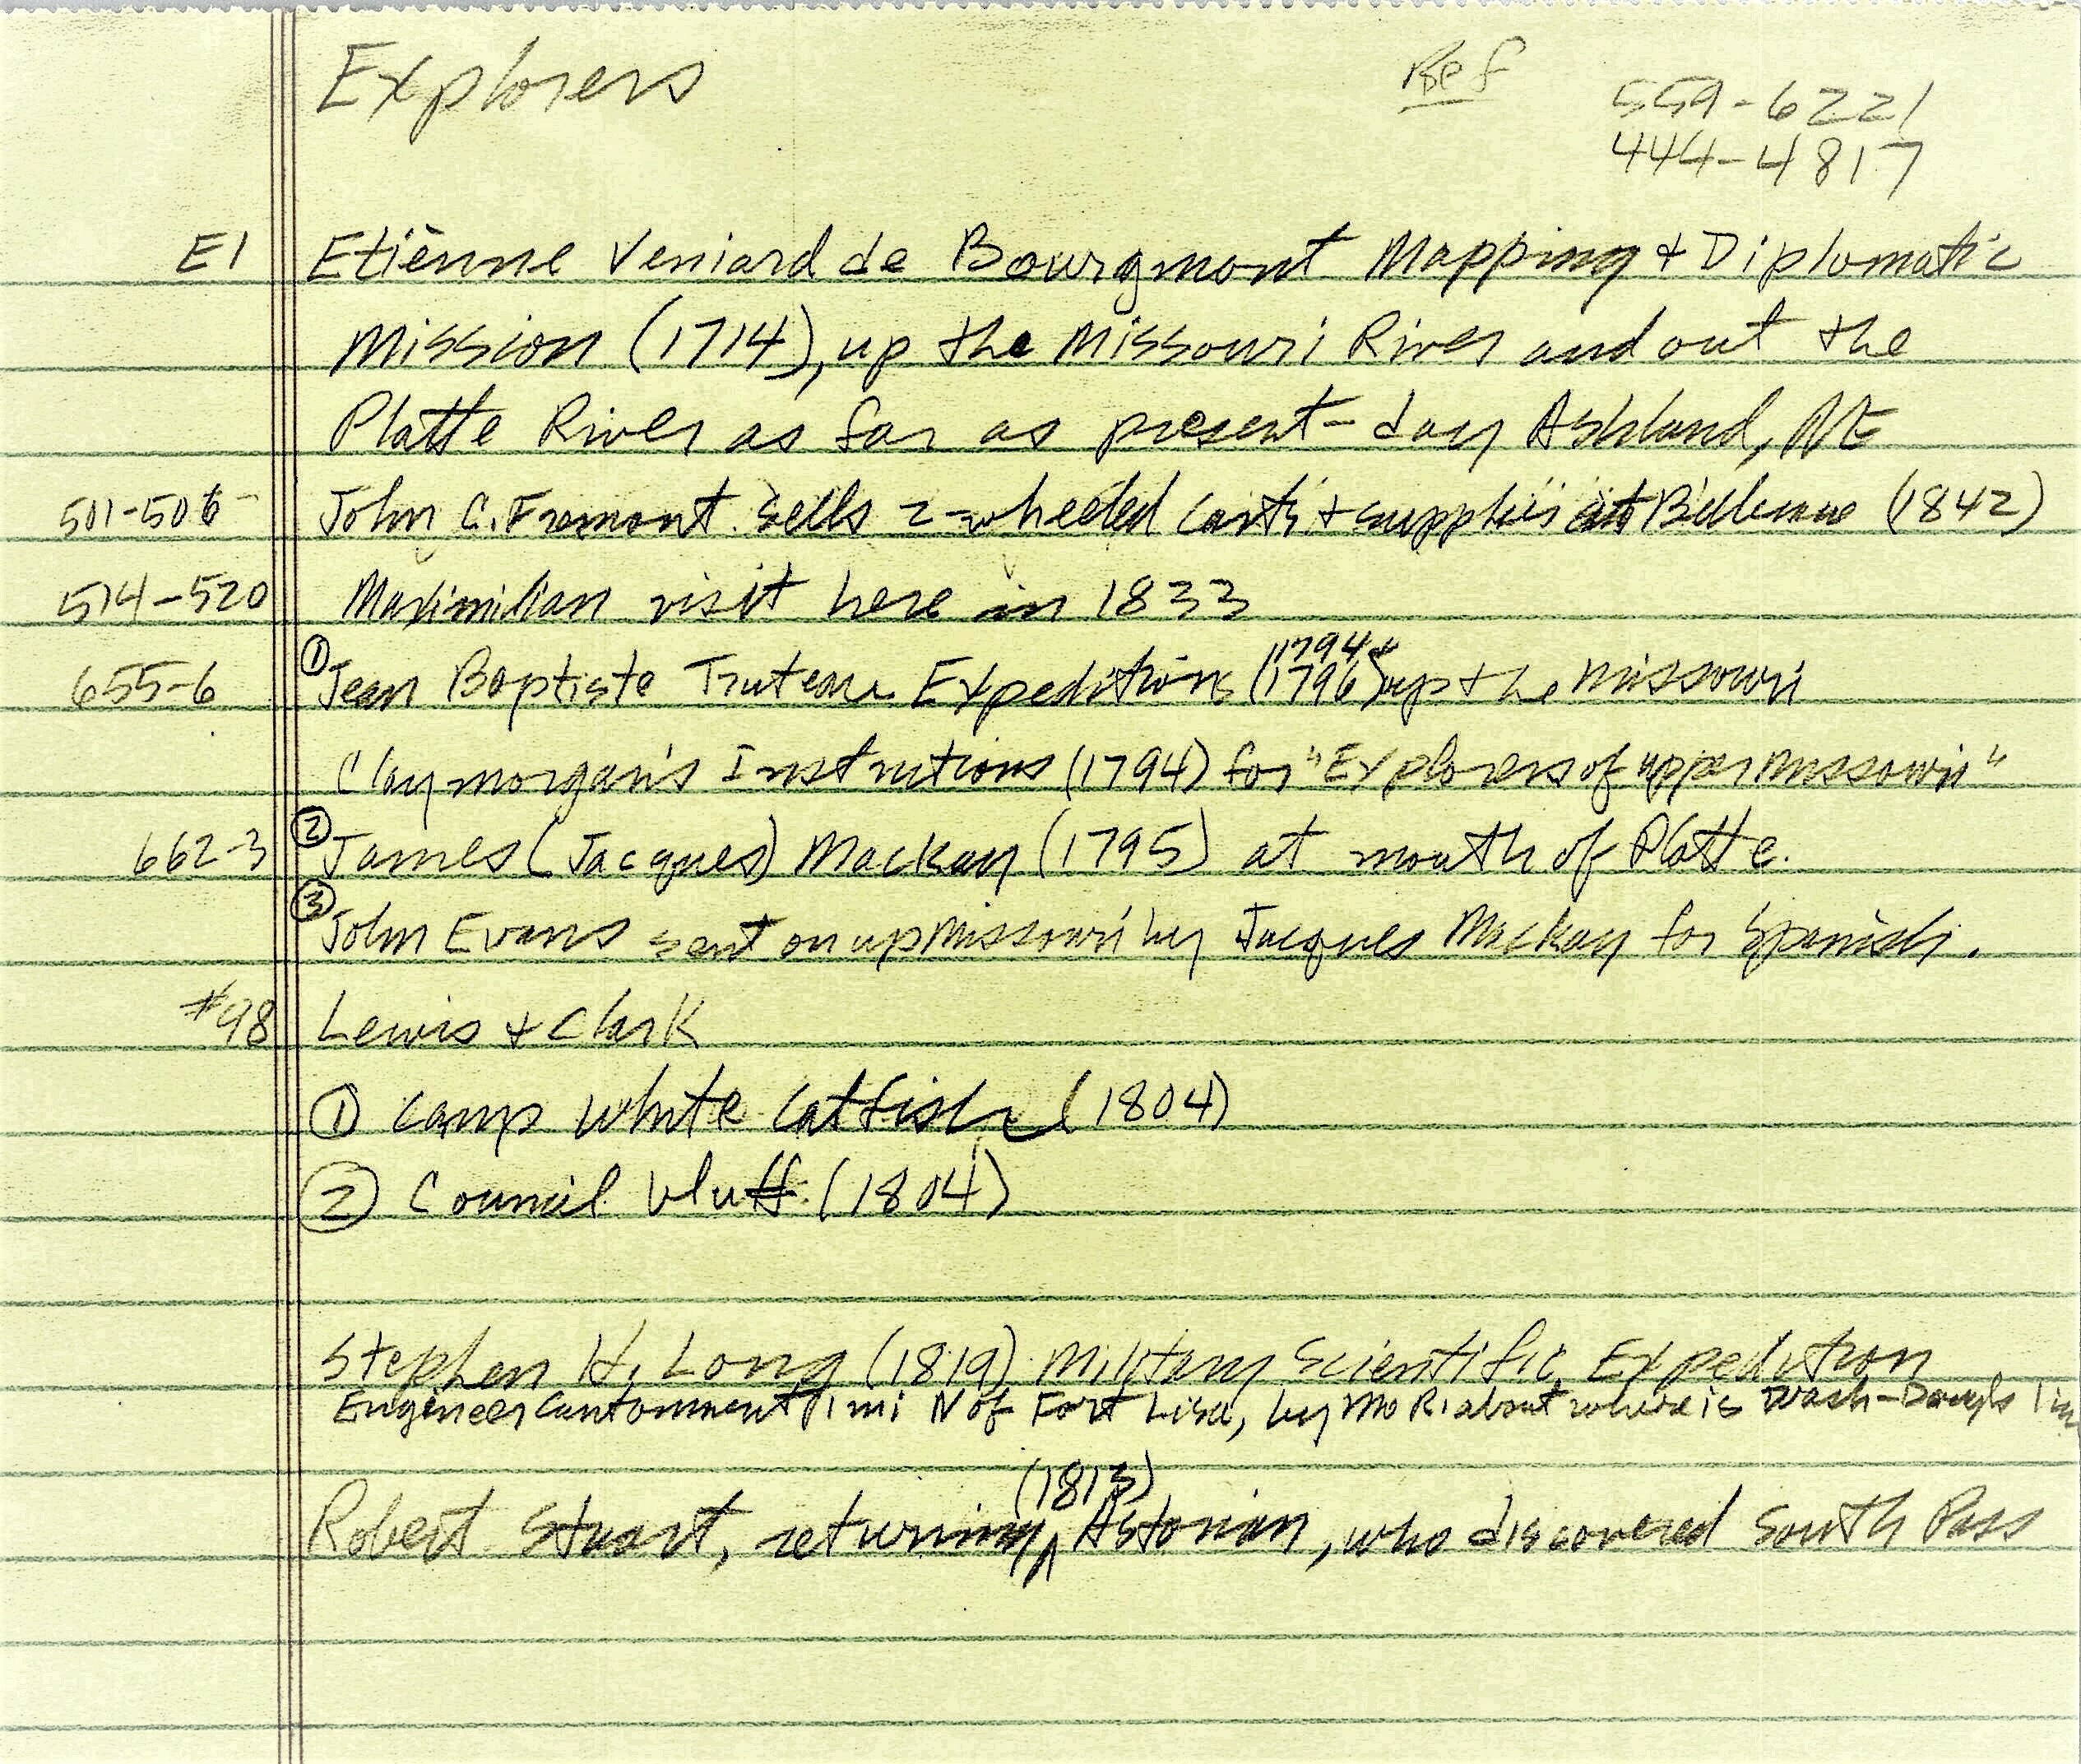 Explorers
Ref
559-6221
444-4817
E1 Etiènne Veniard de Bourgmont Mapping + Diplomatic
Mission (1714), up the Missouri River and out the
Platte River as far as present-day Ashland, NE
501-506- John C. Fremont. Sells 2-wheeled carts + supplies at Bellevue (1842)
514-520 Maximilian visit here in 1833
655-6 ① Jean Baptiste Truteau Expeditions (1794 + 1796) up the Missouri
Claymorgan's Instructions (1794) for "Explorers of upper Missouri"
662-3 ② James (Jacques) Mackay (1795) at mouth of Platte.
③ John Evans sent on up Missouri by Jacques Mackay for Spanish.
#98 Lewis + Clark
① Camp White Catfish (1804)
② Council bluff (1804)
Stephen H. Long (1819) Military Scientific Expedition
Engineer Cantonment 1 mi N of Fort Lisa, by Mo R. about where is Wash-Dougls lin
(1813)
Robert Stuart, returning ^ Astorian, who discovered South Pass